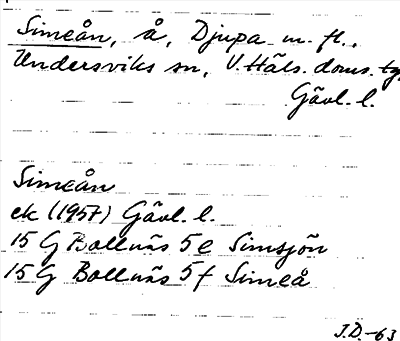 Simeån, å, Djupa m. fl.,
Undersviks sn, V. Häls. doms. tg,
Gävl. l.
Simeån
ek (1957) Gävl. l.
15 G Bollnäs 5 e Simsjön
15 G Bollnäs 5 f Simeå
J.D.-63